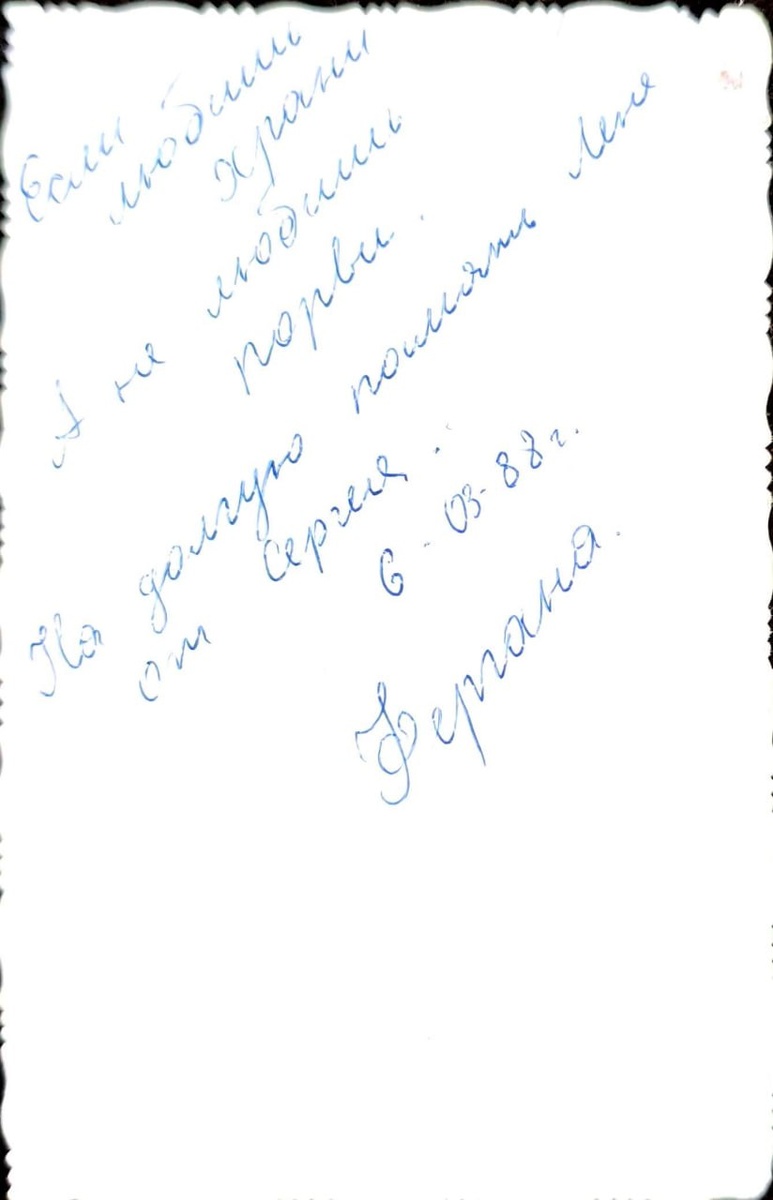 Если
любишь
храни
А не любишь
порви.
На долгую помять Лене
от Сергея.
6-03-88г.
Фергана.